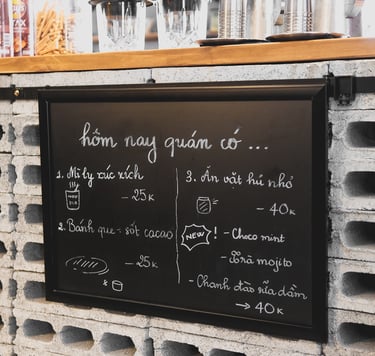 hôm nay quán có ...
1. Mì ly xúc xích
- 25K
2. Bánh que - sốt cacao
- 25K
3. Ăn vặt hũ nhỏ
- 40K
NEW! - Choco mint
- Trà mojito
- Chanh đào sữa dầm
→ 40K